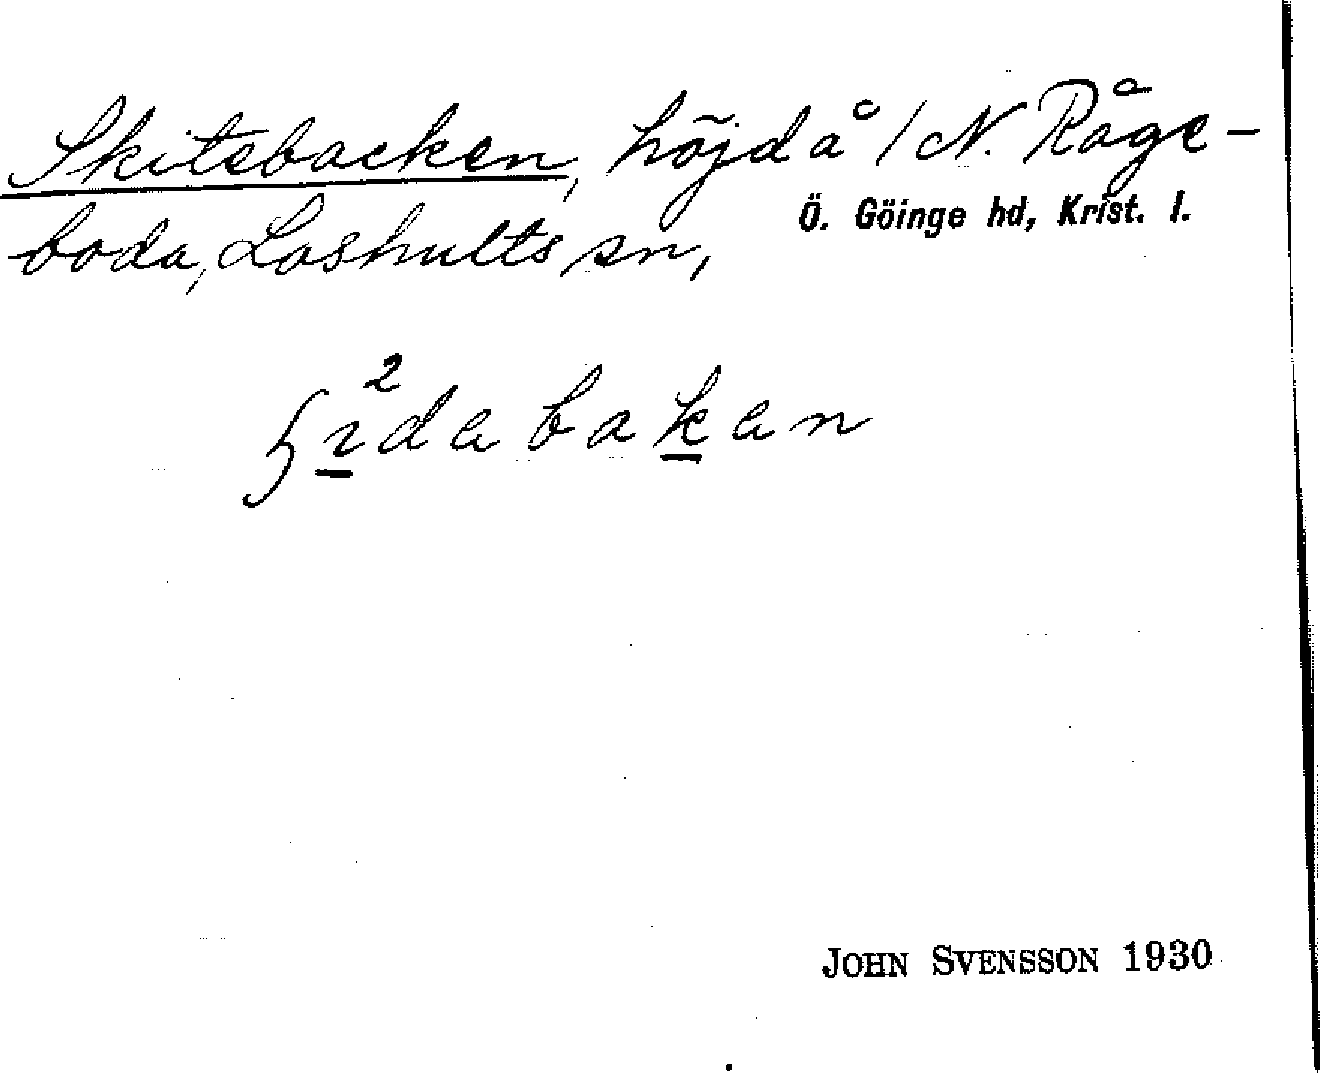 Skitebacken, höjd å / N. Råge-
Ö. Göinge hd, Krist. l.
boda, Loshults sn,
JOHN SVENSSON 1930